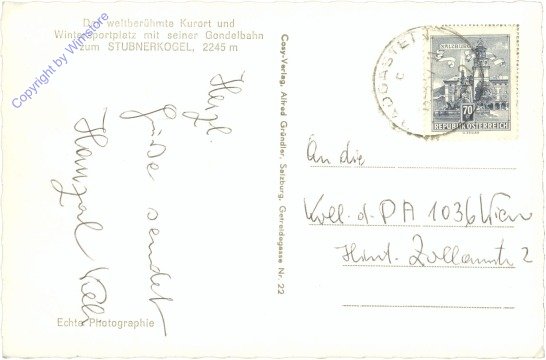 Der weltberühmte Kurort und
Wintersportplatz mit seiner Gondelbahn
zum STUBNERKOGEL, 2245 m
Copyright by Winstore
Herzl.
Grüße sendet
Echte Photographie
Cosy-Verlag, Alfred Gründler, Salzburg, Getreidegasse Nr. 22
BADGASTEIN
SALZBURG
70
REPUBLIK ÖSTERREICH
An die
Koll. d. PA 1036 Wien
Hint. Zollamtstr 2